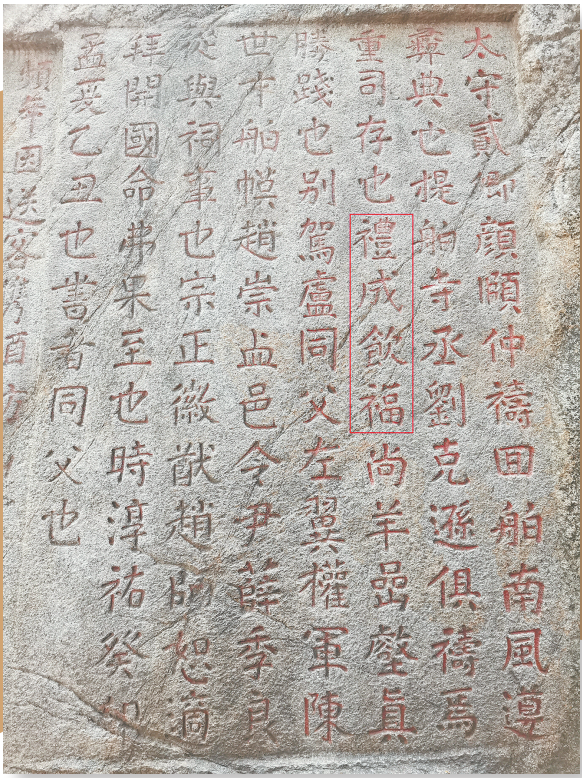 太守貳卿顏頤仲禱囬舶南風遵
彝典也提舶寺丞劉克遜俱禱焉
重司存也禮成飲福尚羊喦壑眞
勝踐也别駕盧同父左翼權軍陳
世才舶幙趙崇邑令尹薛季良
從與祠事也宗正徽猷趙師恕適
拜開國命弗果至也時淳祐癸卯
孟夏乙丑也書者同父也
年因送客